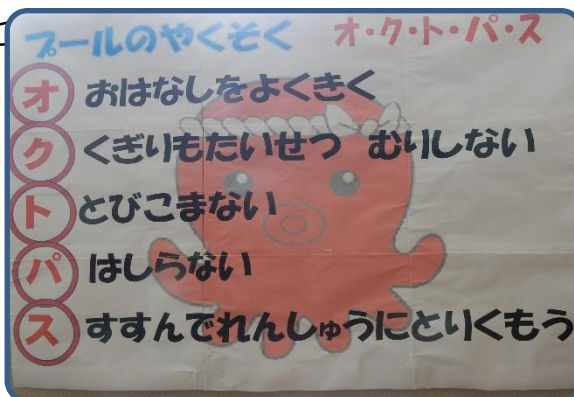 プールのやくそく　オ・ク・ト・パ・ス
オ おはなしをよくきく
ク くぎりもたいせつ　むりしない
ト とびこまない
パ はしらない
ス すすんでれんしゅうにとりくもう